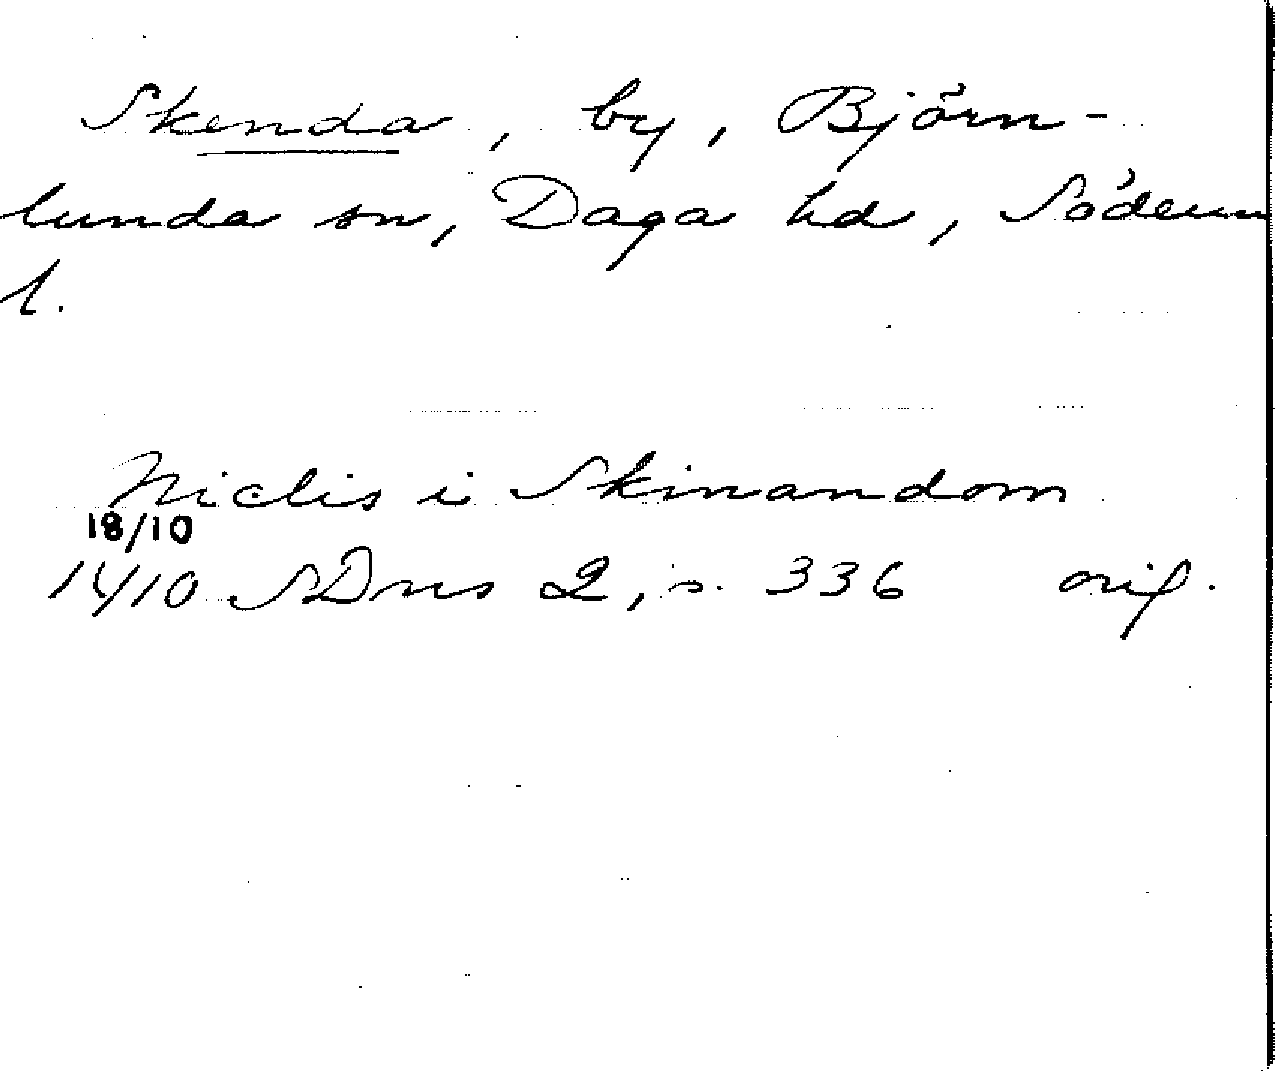 Skenda, by, Björn-
lunda sn, Daga hd, Söderm
l.
Niclis i Skinandom
18/10
14/10 SDns 2, s. 336 orig.